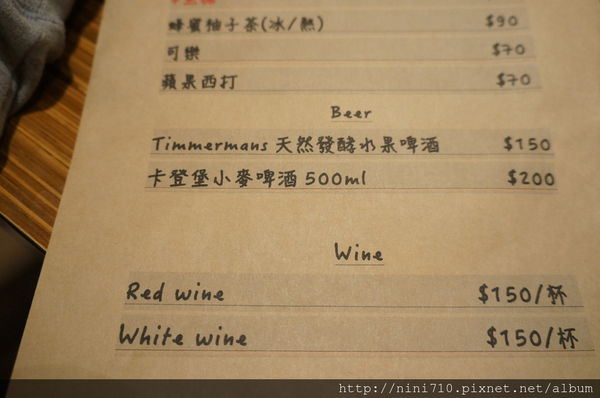 蜂蜜柚子茶(冰/熱) $90
可樂 $70
蘋果西打 $70
Beer
Timmermans 天然發酵水果啤酒 $150
卡登堡小麥啤酒 500ml $200
Wine
Red wine $150/杯
White wine $150/杯
http://nini710.pixnet.net/album